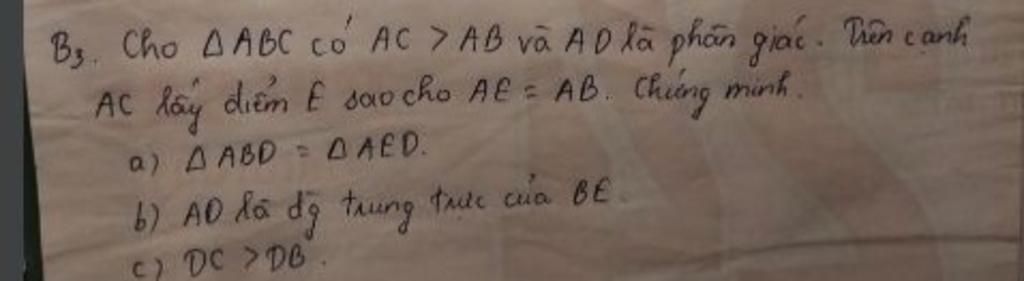 B3. Cho △ABC có AC > AB và AD là phân giác. Trên cạnh
AC lấy điểm E sao cho AE = AB. Chứng minh.
a) △ABD = △AED.
b) AD là đg trung trực của BE.
c) DC > DB.